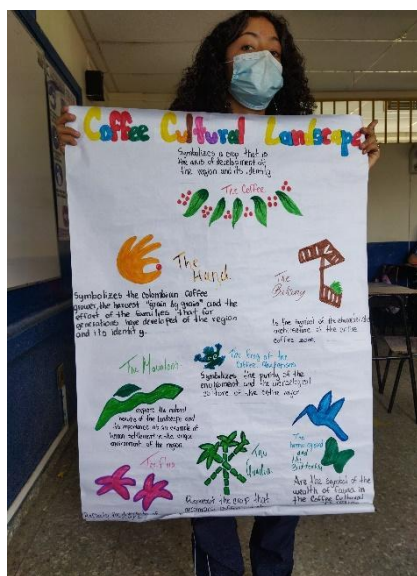 Coffee Cultural Landscape
Symbolizes a crop that is
the axis of development of
the region and its identity
The Coffee
The
Hand
Symbolizes the colombian coffee
grower, the harvest "grain by grain" and the
effort of the families that for
generations have developed of the region
and its identity.
The
Balcony
Is the symbol of the
architecture of the entire
coffee zone.
The Mountain
express the natural
nature of the landscape and
its importance as an example of
human settlement in the unique
environment of the region
The Frog of the
Coffee
Symbolizes the purity of the
environment and the
of the coffee region
The
and the
Butterfly
Are the symbol of the
wealth of fauna in
the Coffee Cultural
The
The Guadua
Represent the crop that